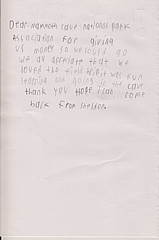 Dear mammoth cave national park
Association for giving
us money so we could go
we all appreciate that we
loved the field trip it was fun
learning and going in the cave
thank you Hope I can come
back from Sheldon.